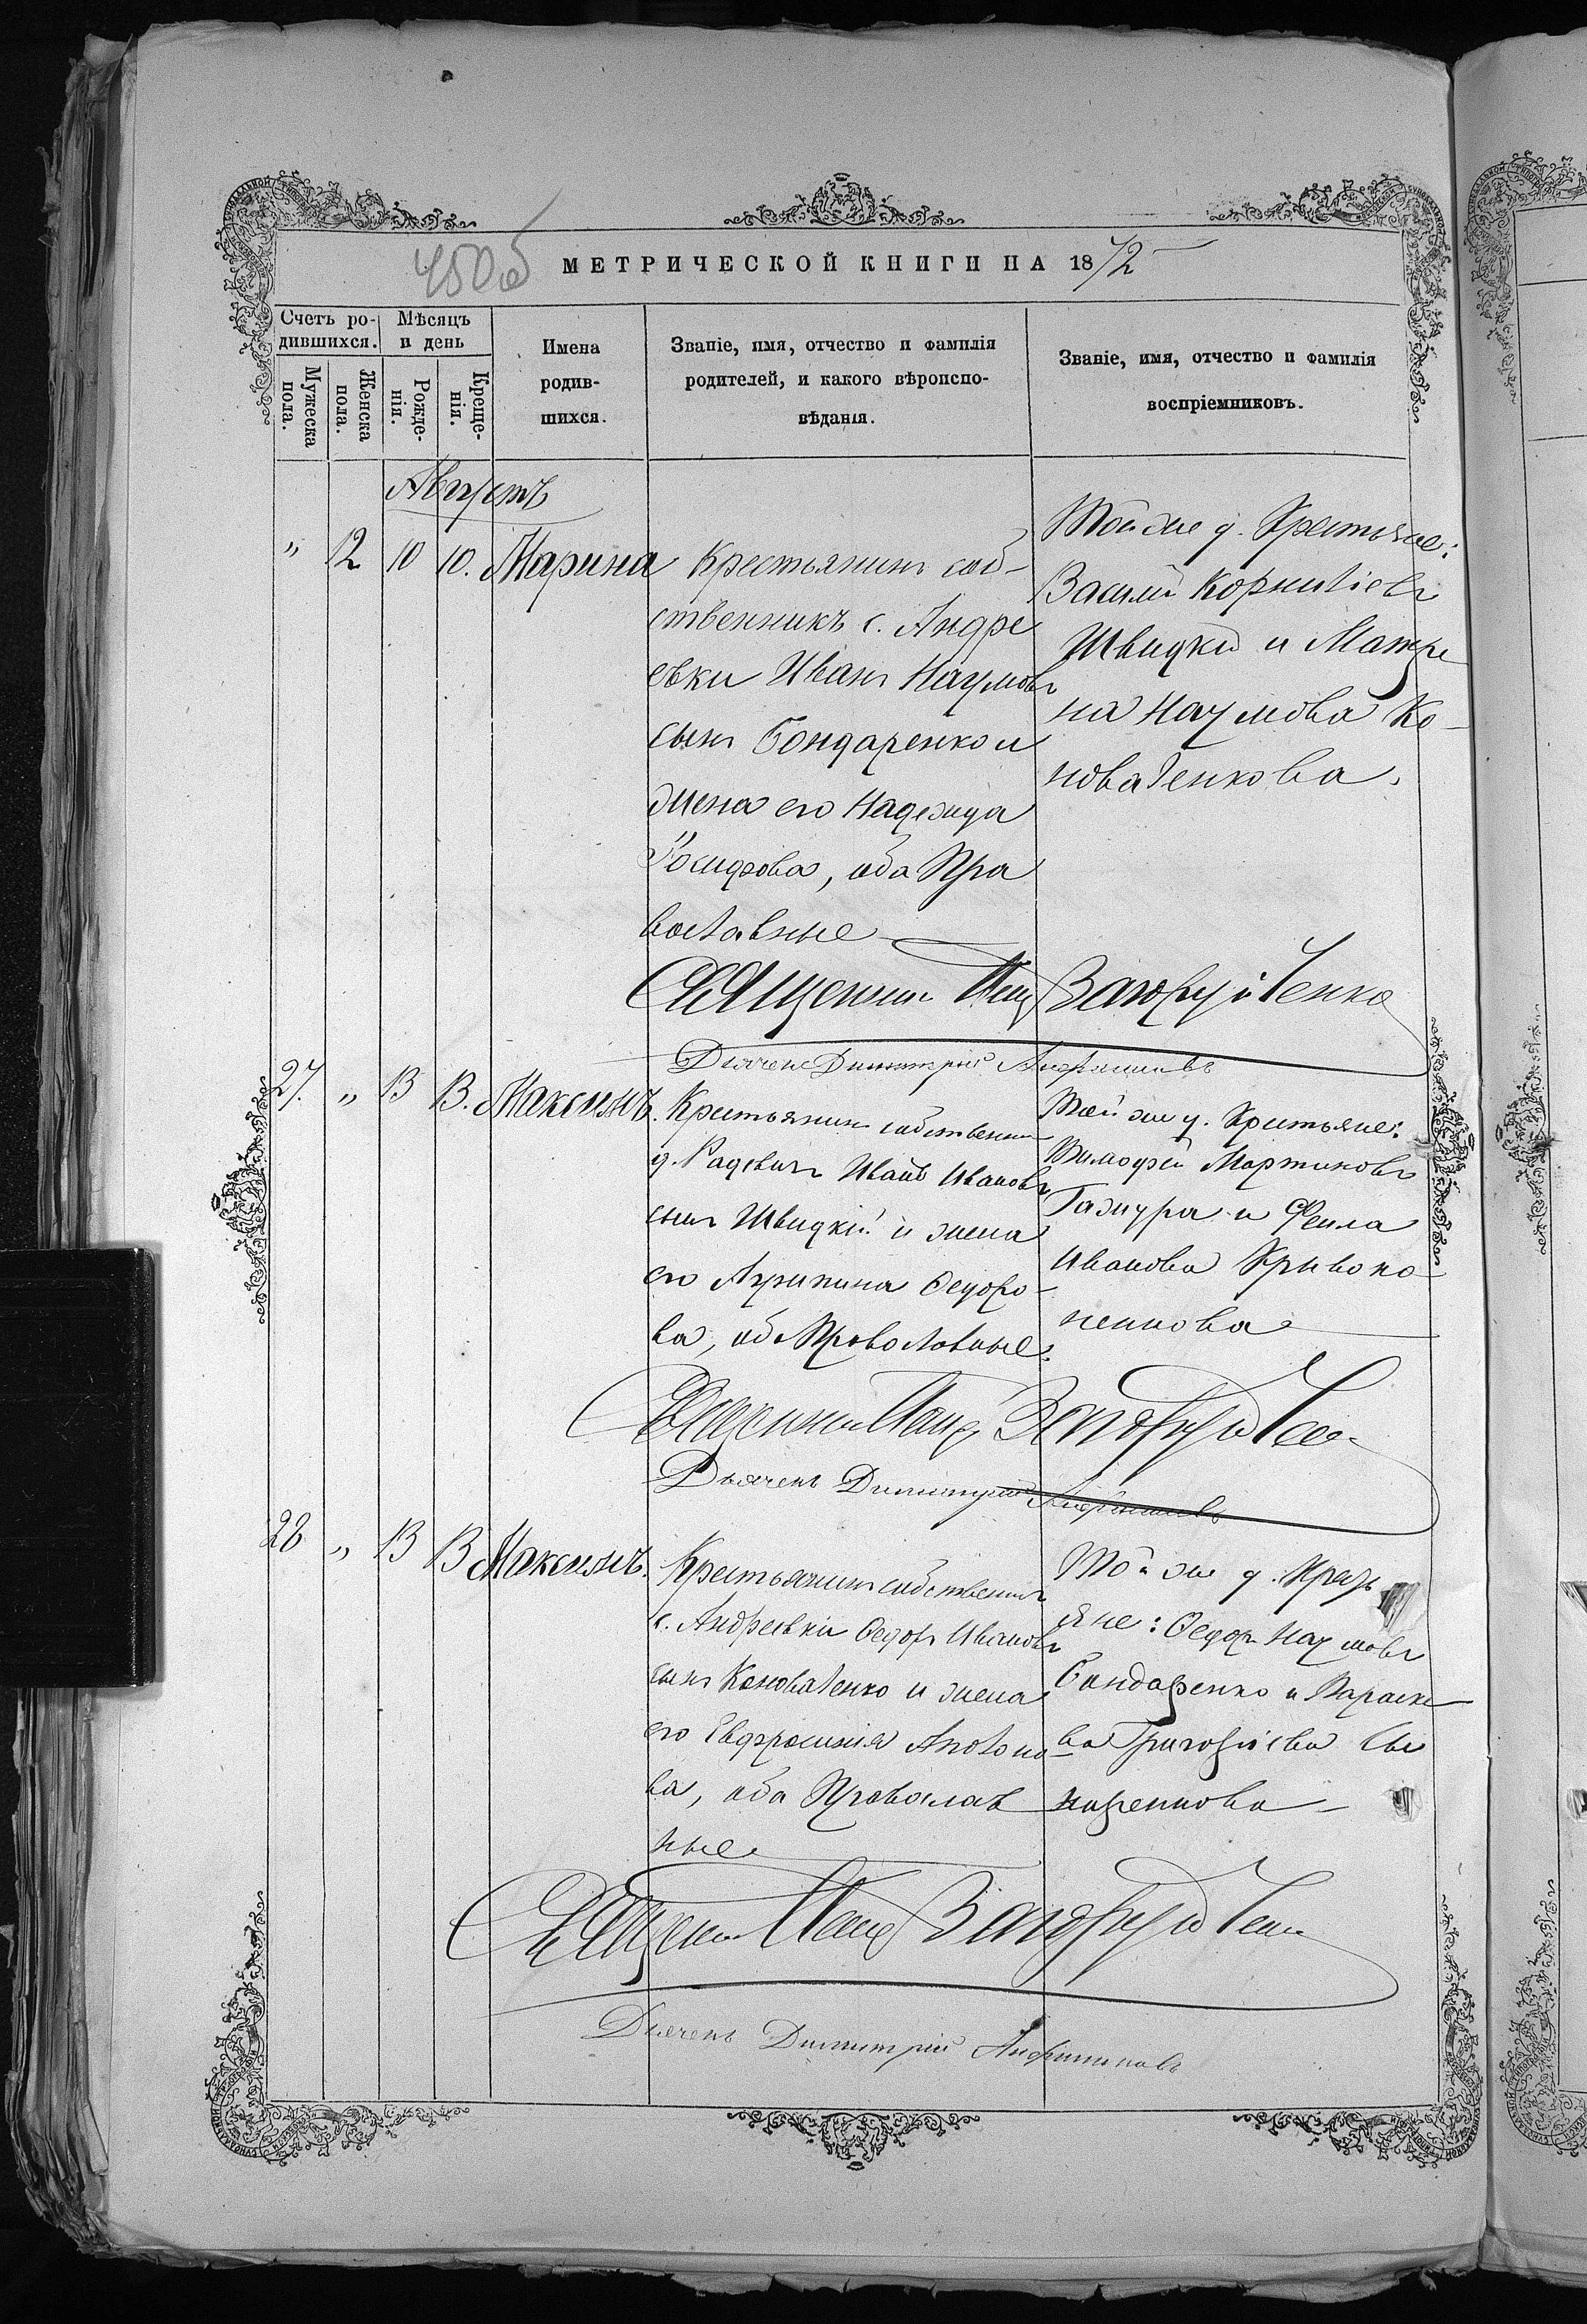 450об
МЕТРИЧЕСКОЙ КНИГИ НА 1872
Счетъ родившихся.
Мужеска пола.
Женска пола.
Мѣсяцъ и день
Рожденія.
Крещенія.
Имена
родив-
шихся.
Званіе, имя, отчество и фамилія
родителей, и какого вѣроиспо-
вѣданія.
Званіе, имя, отчество и фамилія
воспріемниковъ.
Августъ
" 12 10 10. Марина
Крестьянинъ соб-
ственникъ с. Андре
евки Иванъ Наумовъ
сынъ Бондаренко и
жена его Надежда
Іосифова, оба Пра
вославные
Той же д. Крестьяне:
Василій Корниліевъ
Швидкій и Матре
на Наумова Ко-
новаленкова.
Священникъ Заюнчуйченко
Дьячекъ Димитрій
27. " 13 13. Максимъ.
Крестьянинъ собственникъ
д. Радевичъ Иванъ Ивановъ
сынъ Швидкій и жена
его Агрипина Ѳедоро-
ва, оба Православные.
Той же д. Крестьяне:
Тимофей Мартиновъ
Гажура и Фекла
Иванова Кривоко-
ненкова
Священникъ
Дьячекъ Димитрій
28 " 13 13 Максимъ.
Крестьянинъ собственникъ
с. Андреевки Ѳедоръ Ивановъ
сынъ Коноваленко и жена
его Евфросинія Аполоно
ва, оба Православ
ные
Той же д. Кресть
яне: Ѳедоръ Наумовъ
Бондаренко и Параске
ва Григоріева
Священникъ
Дьячекъ Димитрій